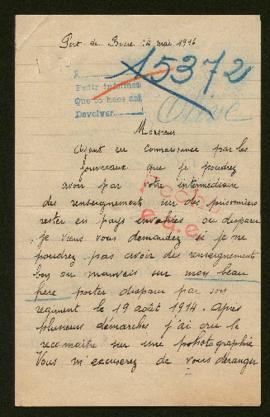 Port de Bouc 24 mai 1916
15372
Pedir informes
Que to hace saber
Devolver
Monsieur
Ayant eu connaissance par les
journeaux que je poudrez
avoir par votre intermediare
des renseignements sur des prisonniers
reste en pays envahies ou disparu
je viens vous demandez si je ne
poudrez pas avoir des renseignement
bon ou mauvais sur mon beau
frère portez disparu par son
regiment le 19 août 1914. Après
plusieurs démarches j'ai cru le
reconnaitre sur une pohotographie
Vous m'excuserez de vous déranger